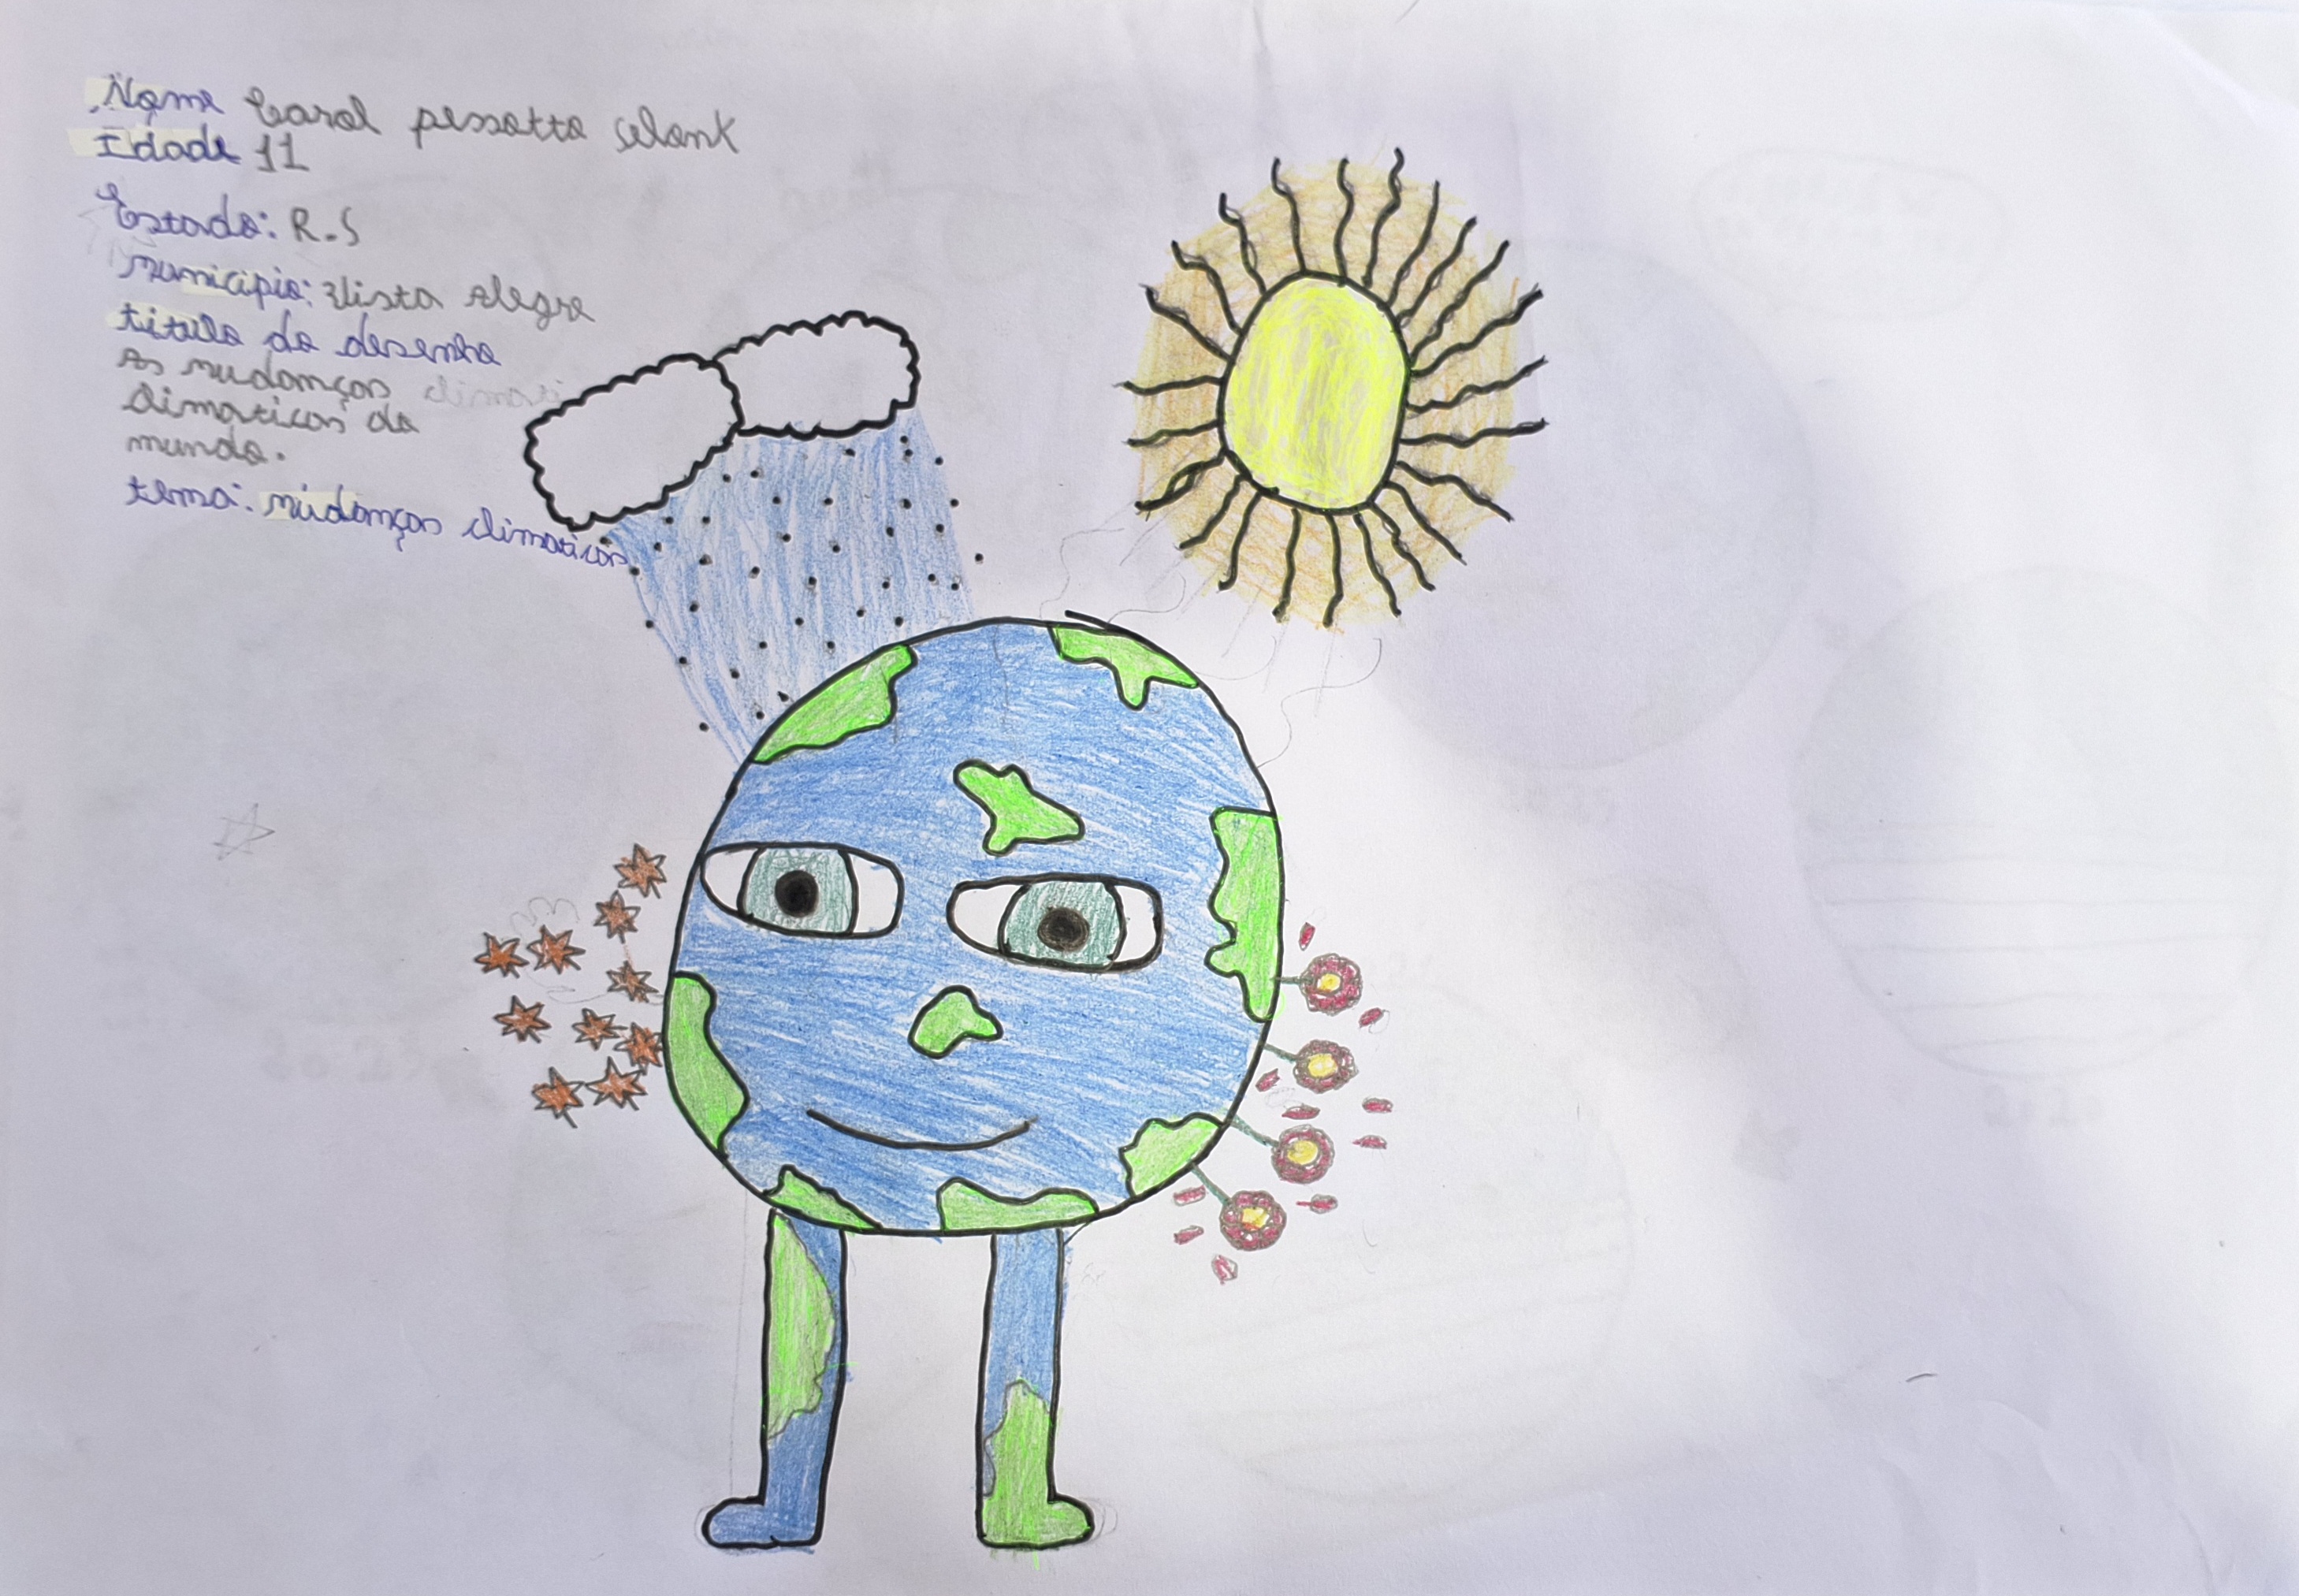 Nome Carol pessotto
Idade 11
Estado: R.S
município: Vista Alegre
titulo do desenho
As mudanças climati
climaticas do
mundo.
tema: mudanças climaticas